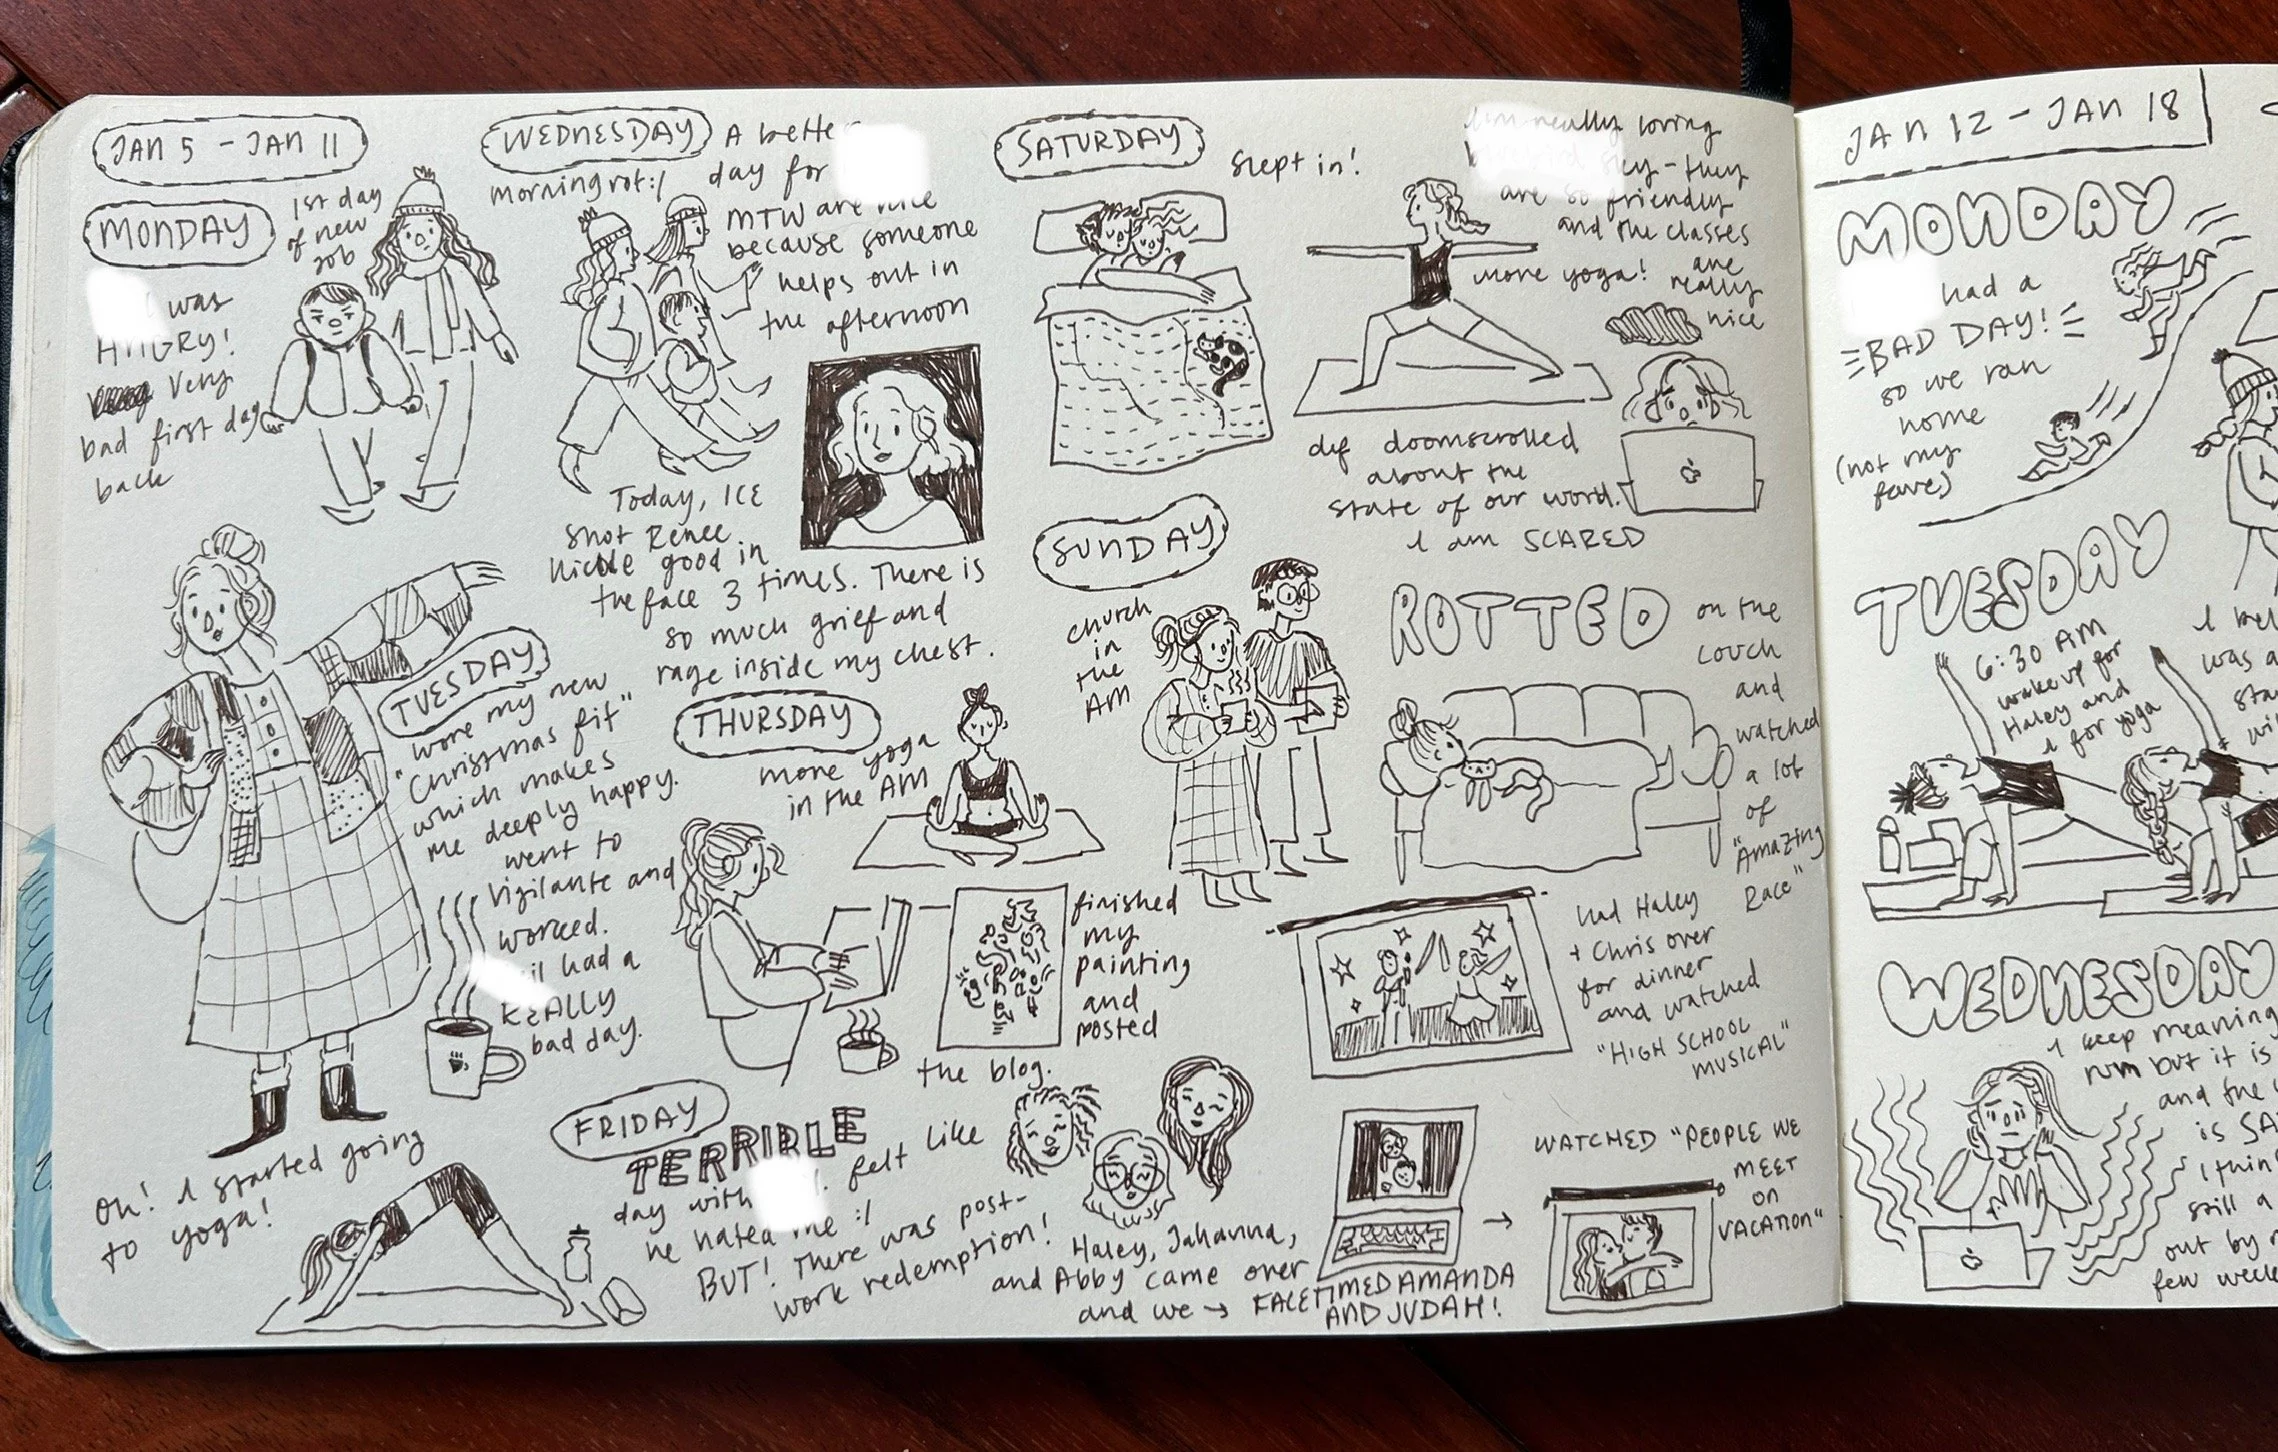 JAN 5 - JAN 11
MONDAY
1st day
of new
job
was
ANGRY!
very
bad first day
back
TUESDAY
wore my new
"Christmas fit"
which makes
me deeply happy.
went to
vigilante and
worked.
had a
REALLY
bad day.
Oh! I started going
to yoga!
WEDNESDAY
morning rot :/
A better
day for
MTW are nice
because someone
helps out in
the afternoon
Today, ICE
shot Renee
Nicole good in
the face 3 times. There is
so much grief and
rage inside my chest.
THURSDAY
more yoga
in the AM
finished
my
painting
and
posted
the blog.
FRIDAY
TERRIBLE
day with felt like
he hated me :/
BUT! There was post-
work redemption!
Haley, Jahanna,
and Abby came over
and we →
FACETIMED AMANDA
AND JUDAH!
→
WATCHED "PEOPLE WE
MEET
ON
VACATION"
SATURDAY
Slept in!
I'm really loving
sky - they
are so friendly
and the classes
are
really
nice
more yoga!
def doomscrolled
about the
state of our world.
I am SCARED
SUNDAY
church
in
the
AM
ROTTED
on the
couch
and
watched
a lot
of
"Amazing
Race"
had Haley
+ Chris over
for dinner
and watched
"HIGH SCHOOL
MUSICAL"
JAN 12 - JAN 18
MONDAY
had a
BAD DAY!
so we ran
home
(not my
fave)
TUESDAY
6:30 AM
wake up for
Haley and
I for yoga
was a
WEDNESDAY
I keep meaning
run but it is
and the
is
still a
out by
few week